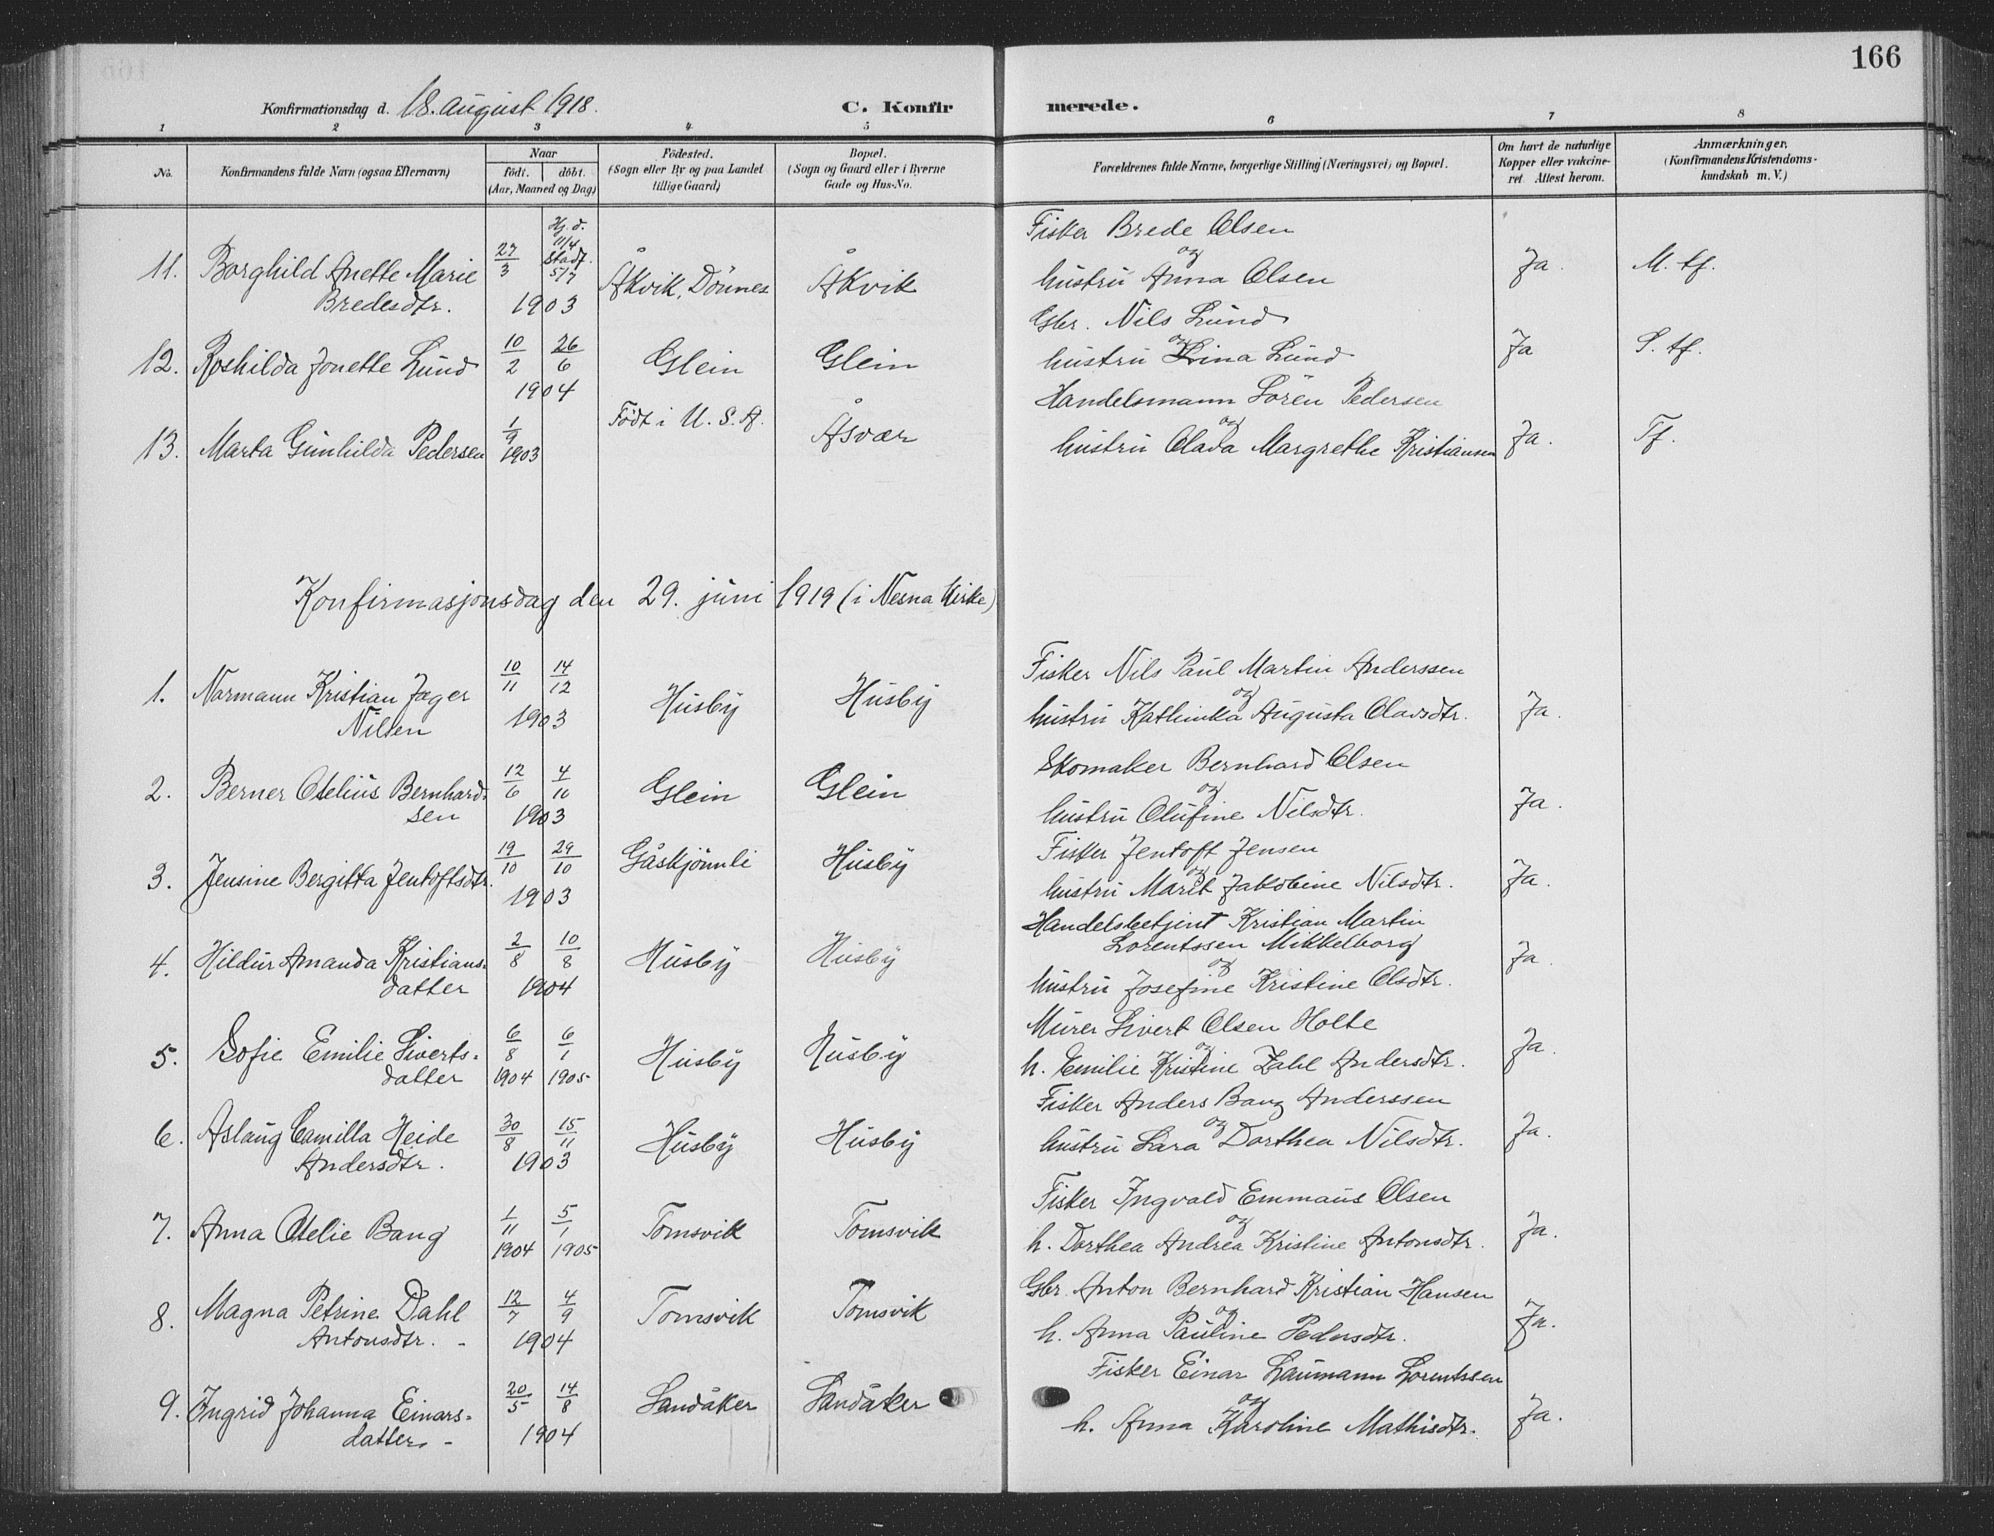 166
Konfirmationsdag d. 18. august 1918.
C. Konfirmerede.
1 2 3 4 5 6 7 8
No. Konfirmandens fulde Navn (ogsaa Efternavn) Naar födt. döbt. (Aar, Maaned og Dag) Födested. (Sogn eller By og paa Landet tillige Gaard) Bopæl. (Sogn og Gaard eller i Byerne Gade og Hus-No. Forældrenes fulde Navne, borgerlige Stilling (Næringsvei) og Bopæl. Om havt de naturlige Kopper eller vakcineret. Attest herom. Anmærkninger. (Konfirmandens Kristendomskundskab m. V.)
11. Borghild Anette Marie Bredesdtr. 27/3 Hj. d. 11/4 Stadf. 5/7 1903 Åkvik, Dönnes Åkvik Fisker Brede Olsen og hustru Anna Olsen Ja. M. tf.
12. Roshilda Jonette Lund 10/2 26/6 1904 Glein Glein Gbr. Nils Lund og hustru Lina Lund Ja S. tf.
13. Marta Gunhilda Pedersen 1/9 1903 Födt i U. S. A. Åsvær Handelsmann Sören Pedersen og hustru Olava Margrethe Kristiansen Ja. Tf.
Konfirmasjonsdag den 29. juni 1919 (i Nesna kirke)
1. Normann Kristian Jager Nilsen 10/11 14/12 1903 Husby Husby Fisker Nils Paul Martin Anderssen og hustru Kathinka Augusta Olavsdtr. Ja.
2. Berner Otelius Bernhardsen 12/6 4/10 1903 Glein Glein Skomaker Bernhard Olsen og hustru Olufine Nilsdtr. Ja.
3. Jensine Bergitta Jentoftsdtr. 19/10 29/10 1903 Gåskjönnli Husby Fisker Jentoft Jensen og hustru Marit Jakobine Nilsdtr. Ja.
4. Hildur Amanda Kristiansdatter 2/8 10/8 1904 Husby Husby Handelsbetjent Kristian Martin Lorentssen Mikkelborg og hustru Josefine Kristine Olsdtr. Ja.
5. Sofie Emilie Sivertsdatter 6/8 1904 6/1 1905 Husby Husby Murer Sivert Olsen Holte og h. Emilie Kristine Zahl Andersdtr. Ja.
6. Aslaug Camilla Heide Andersdtr. 30/8 15/11 1903 Husby Husby Fisker Anders Bang Anderssen og hustru Sara Dorthea Nilsdtr. Ja.
7. Anna Otelie Bang 1/11 1904 5/1 1905 Tomsvik Tomsvik Fisker Ingvald Emmaus Olsen og h. Dorthea Andrea Kristine Antonsdtr. Ja.
8. Magna Petrine Dahl Antonsdtr. - 12/7 4/9 1904 Tomsvik Tomsvik Gbr. Anton Bernhard Kristian Hansen og h. Anna Pauline Pedersdtr. Ja.
9. Ingrid Johanna Einarsdatter - 20/5 14/8 1904 Sandåker Sandåker Fisker Einar Laumann Lorentssen og h. Anna Karoline Mathisdtr. Ja.